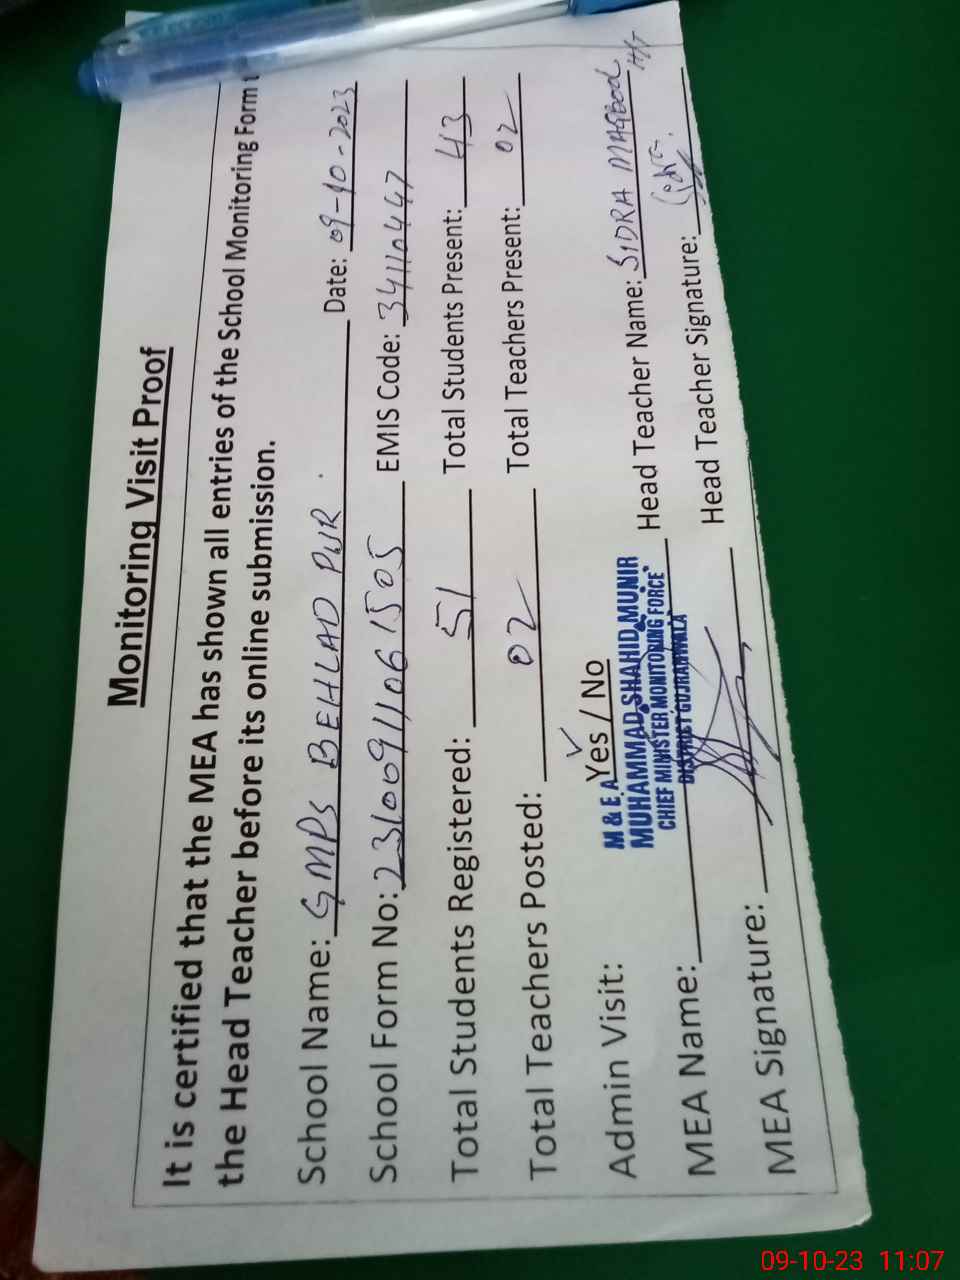 Monitoring Visit Proof
It is certified that the MEA has shown all entries of the School Monitoring Form t
the Head Teacher before its online submission.
School Name: GMPS BEHLAD PUR. Date: 09-10-2023
School Form No: 23100911061505 EMIS Code: 34110447
Total Students Registered: 51 Total Students Present: 43
Total Teachers Posted: 02 Total Teachers Present: 02
Admin Visit: Yes / No
M & E.A
MUHAMMAD SHAHID MUNIR
CHIEF MINISTER MONITORING FORCE
DISTRICT GUJRANWALA
MEA Name: Head Teacher Name: SIDRA MAQBOOL H/T
MEA Signature: Head Teacher Signature: Sidra.
09-10-23 11:07